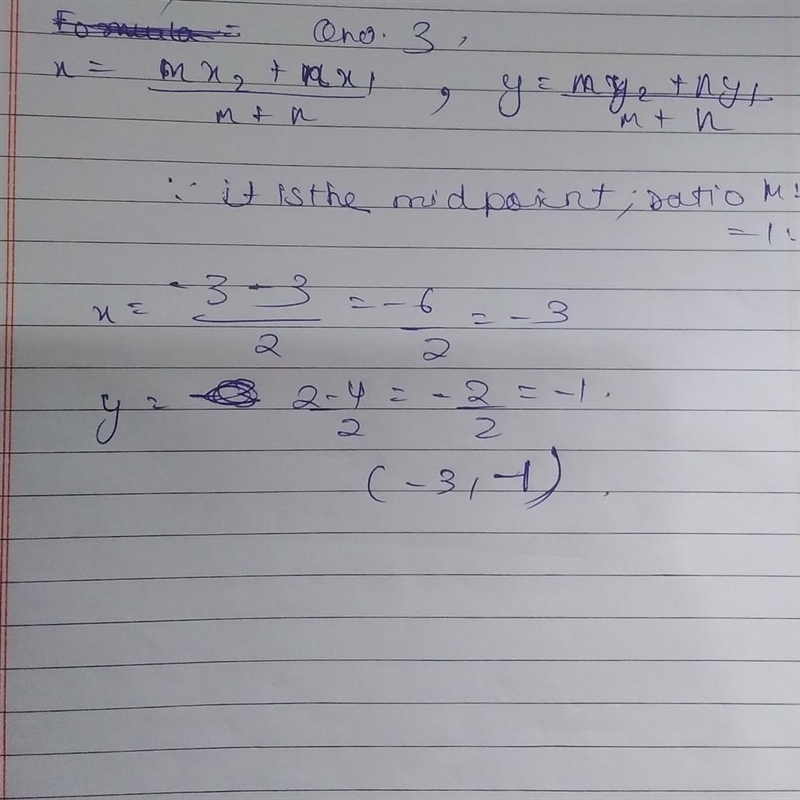 Formula = Qno. 3,
x = mx₂ + nx₁ / m + n , y = my₂ + ny₁ / m + n
∵ it is the midpoint ; ratio M:
= 1:
x = -3 - 3 / 2 = -6 / 2 = -3
y = 2-4 / 2 = -2 / 2 = -1.
(-3, -1).